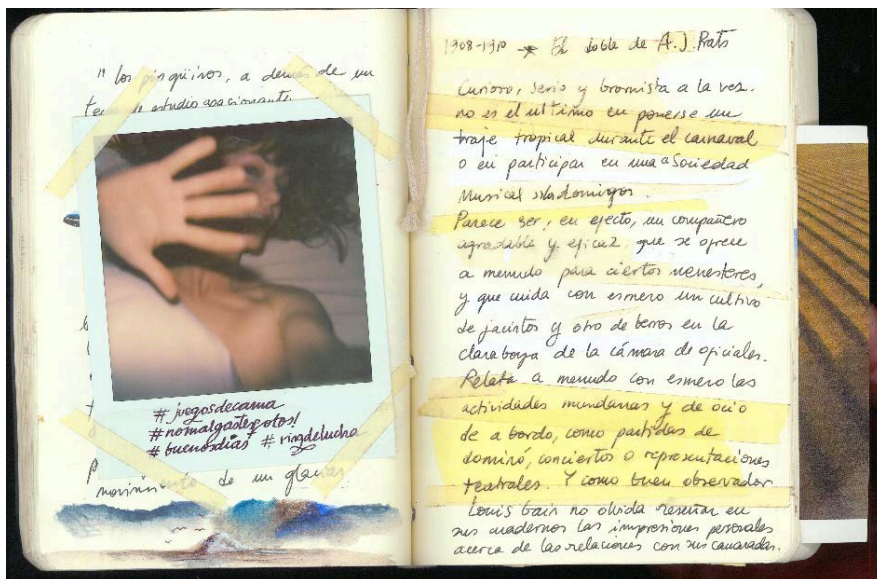 "los pingüinos, a demás de un
de estudio apasionante
#juegosdecama
#nomalgastesfotos!
#buenosdías #ringdelucha
movimiento de un glaciar
1908-1910 → El doble de A.J. Prats
Curioso, serio y bromista a la vez.
no es el ultimo en ponerse un
traje tropical durante el carnaval
o en participar en una "Sociedad
Musical
Parece ser, en efecto, un compañero
agradable y eficaz que se ofrece
a menudo para ciertos menesteres,
y que cuida con esmero un cultivo
de jacintos y otro de berros en la
claraboya de la cámara de oficiales.
Relata a menudo con esmero las
actividades mundanas y de ocio
de a bordo, como partidas de
dominó, conciertos o representaciones
teatrales. Y como buen observador
Louis Gain no olvida reseñar en
sus cuadernos las impresiones personales
acerca de las relaciones con sus camaradas.